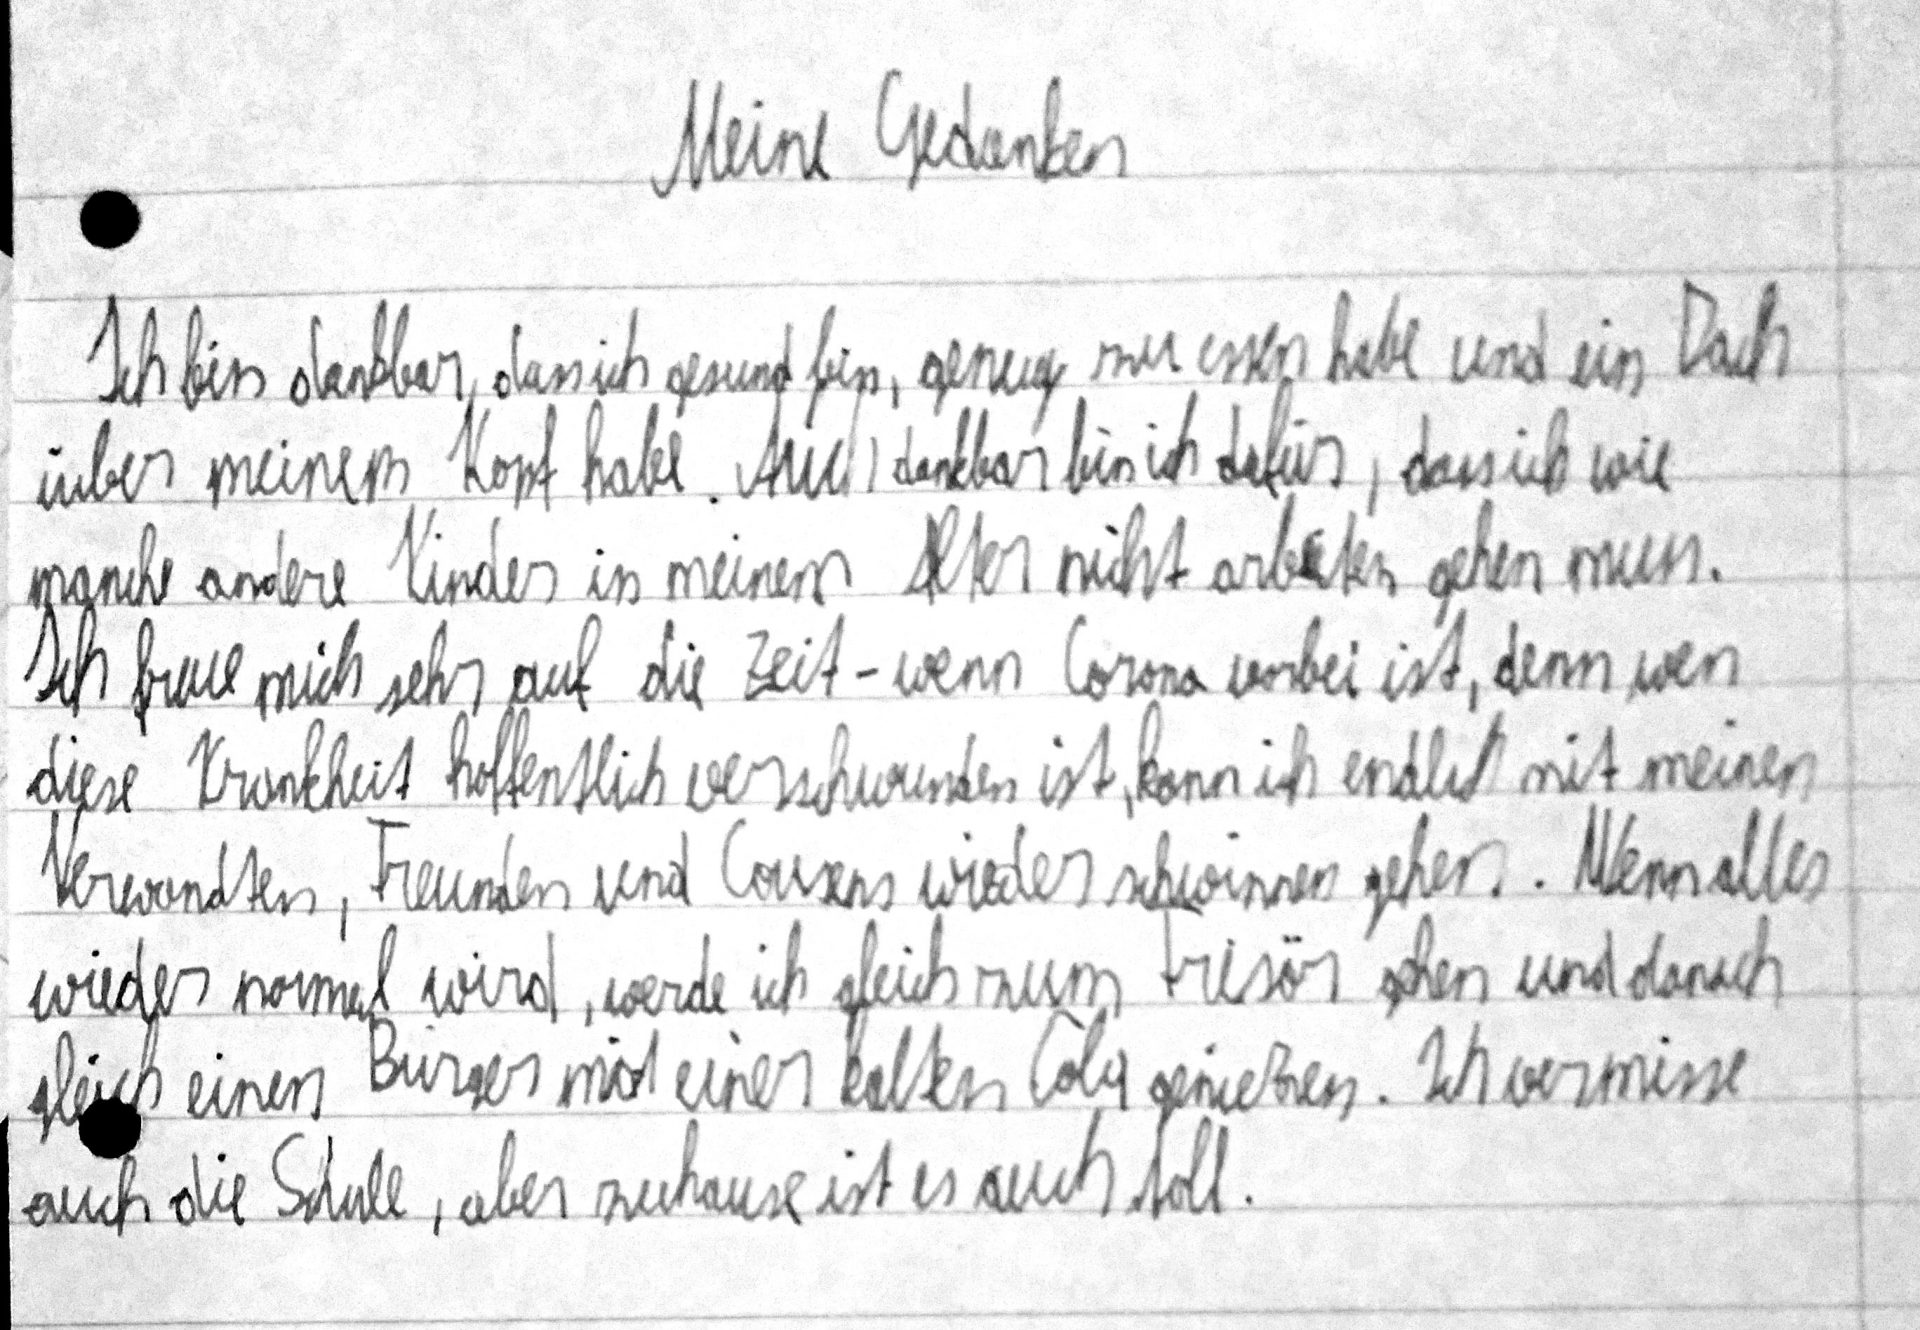 Meine Gedanken
Ich bin dankbar, dass ich gesund bin, genug zu essen habe und ein Dach
über meinem Kopf habe. Auch dankbar bin ich dafür, dass ich wie
manche andere Kinder in meinem Alter nicht arbeiten gehen muss.
Ich freue mich sehr auf die Zeit - wenn Corona vorbei ist, denn wen
diese Krankheit hoffentlich verschwunden ist, kann ich endlich mit meinen
Verwandten, Freunden und Cousens wieder schwimmen gehen. Wenn alles
wieder normal wird, werde ich gleich zum Frisör gehen und danach
gleich einen Burger mit einer kalten Cola genießen. Ich vermisse
auch die Schule, aber zuhause ist es auch toll.